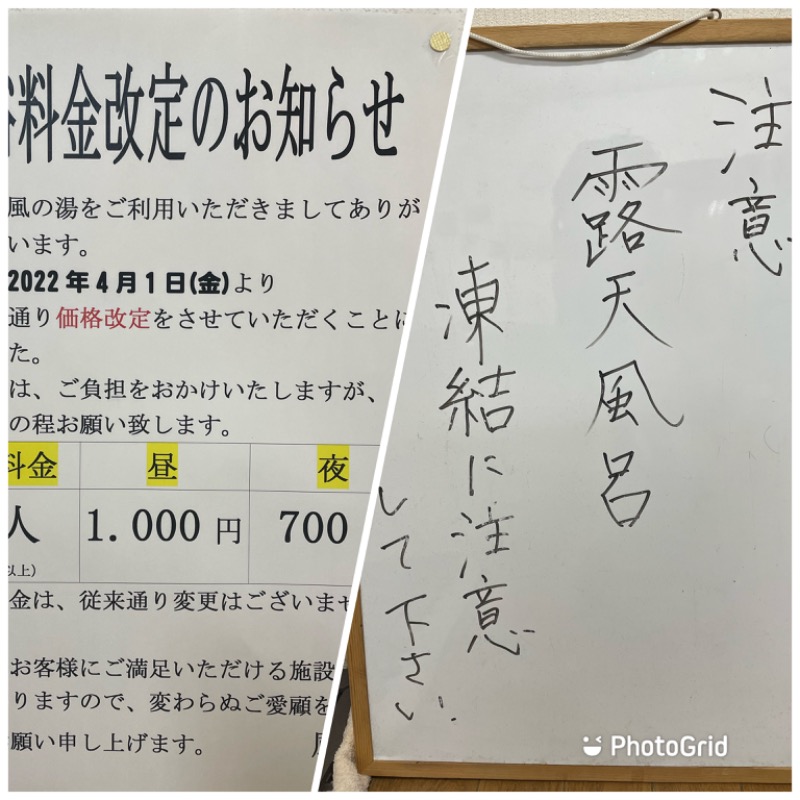 料金改定のお知らせ
風の湯をご利用いただきましてありが
います。
2022年4月1日(金)より
通り価格改定をさせていただくことに
た。
は、ご負担をおかけいたしますが、
の程お願い致します。
料金 昼 夜
人 1.000円 700
以上)
金は、従来通り変更はございませ
お客様にご満足いただける施設
りますので、変わらぬご愛顧を
願い申し上げます。
注意
露天風呂
凍結に注意
して下さい.
PhotoGrid